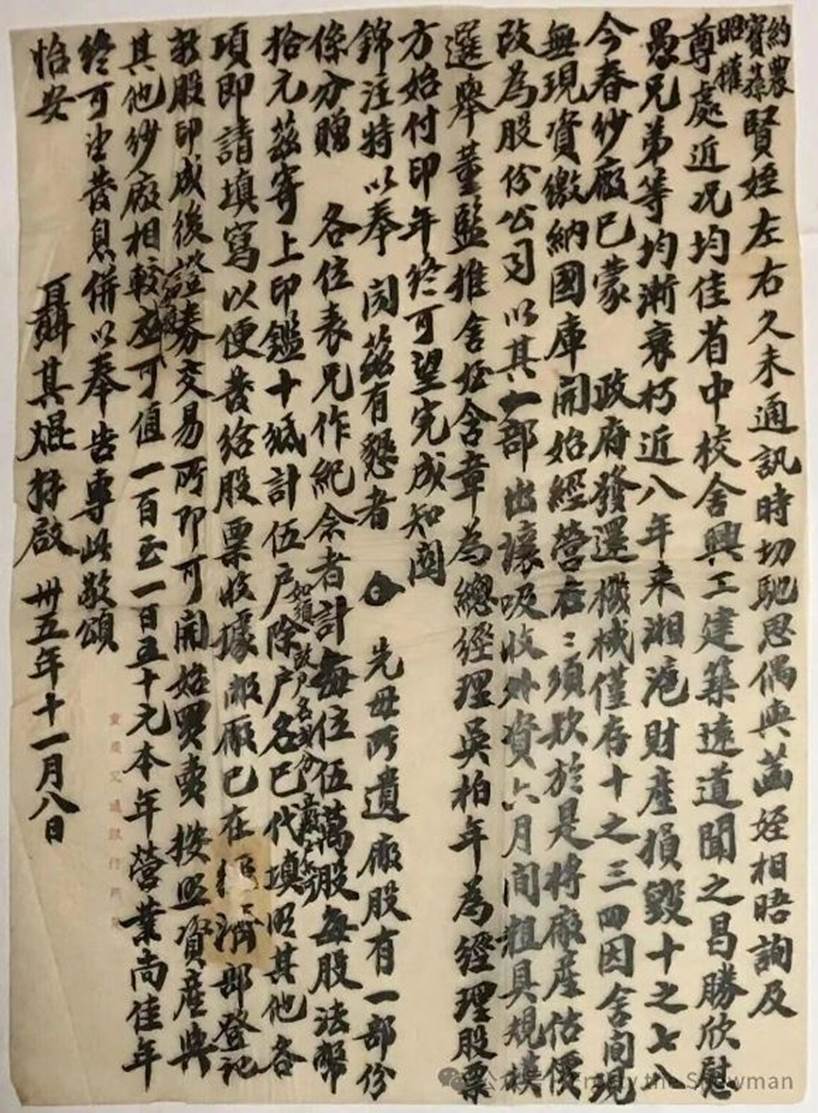 約農
寶葇
昭權
賢姪左右久未通訊時切馳思偶與菡姪相晤詢及
尊處近况均佳省中校舍興工建築遠道聞之曷勝欣慰
愚兄弟等均漸衰朽近八年來湘滬財產損毀十之七八
今春紗廠已蒙 政府發還機械僅存十之三四因舍間現
無現資繳納國庫開始經營在在須欵於是將廠產估價
改為股份公司以其一部出讓吸收外資六月間粗具規模
選舉董監推舍姪含章為總經理吳柏年為經理股票
方始付印年終可望完成知関
錦注特以奉 聞茲有懇者 先母所遺廠股有一部份
係分贈 各位表兄作紀念者計每位伍萬股每股法幣
拾元茲寄上印鑑十紙計伍戶除戶名已代填照其他各
項即請填寫以便發給股票收據敝廠已在經濟部登記
新股印成後證券交易所即可開始買賣按照資產與
其他紗廠相較應可值一百至一百五十元本年營業尚佳年
終可望發息併以奉告專此敬頌
怡安
聶其焜拜啟 卅五年十一月八日
重慶交通銀行
公众号 the Snowman